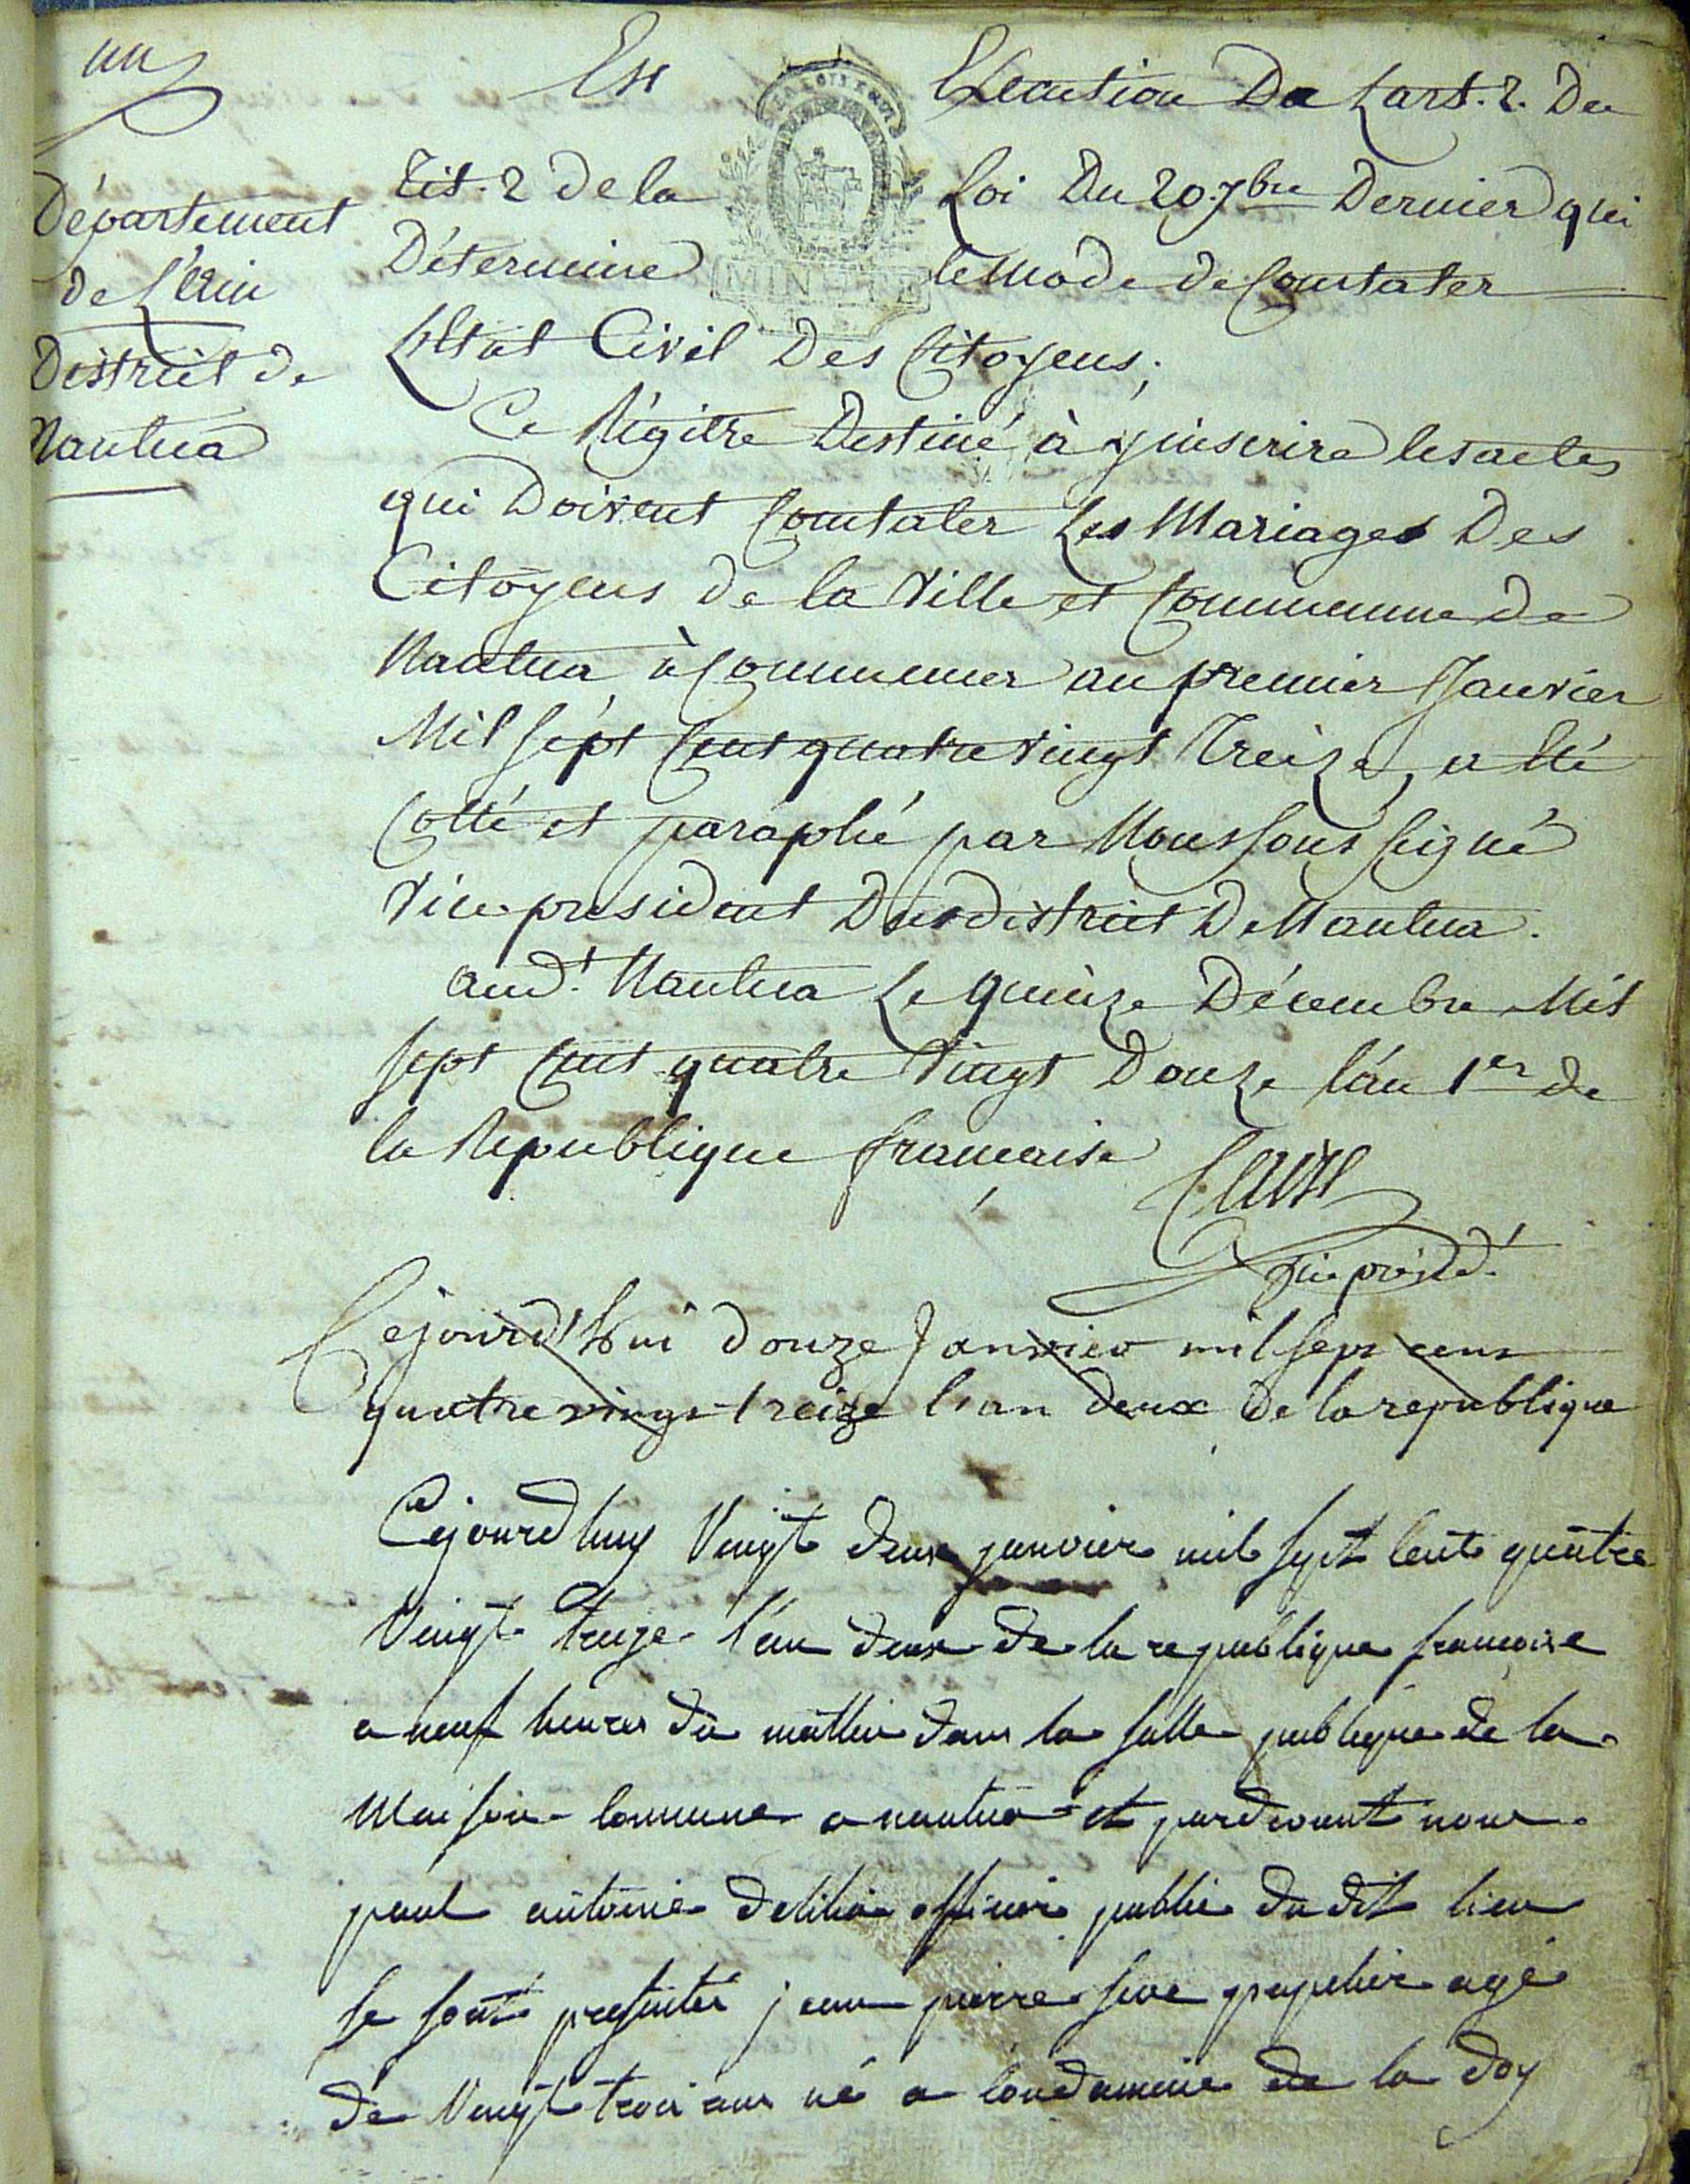 un
Département
de L'Ain
District de
Nantua
En Execution De Lart. 2. Du
Tit. 2 de la Loi Du 20 7bre Dernier qui
Détermine le Mode de Constater
L'Etat Civil Des Citoyens;
Ce Régitre Destiné à y inscrire les actes
qui Doivent Constater Les Mariages Des
Citoyens de la Ville et Commune de
Nantua à Commencer au premier Janvier
Mil sept Cent quatre vingt Treize, a été
Cotté et paraphé par Nous sous signé
Vice-président Du district De Nantua.
aud.t Nantua Le quinze Décembre Mil
sept Cent quatre Vingt Douze l'an 1er de
la République francaise
vice présid.t
Cejourd'hui douze Janvier mil sept cent
quatre vingt-treize l'an deux de la republique
Cejourdhuy Vingt deux janvier mil sept cent quatre
Vingt treize l'an deux de la republique francoise
a neuf heures du mattin dans la salle publique de la
Maison commune a nantua et pardevant nous
paul antoine officier public du dit lieu
se sont presentés jean pierre papetier agé
de Vingt trois ans né a condamine de la doy